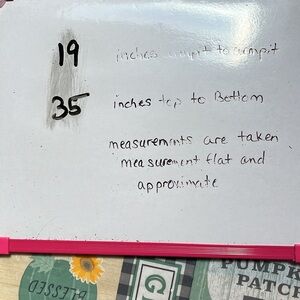 19 inches armpit to armpit
35 inches top to Bottom
measurements are taken
measurement flat and
approximate
BLESSED
G
PUMPK
PATC